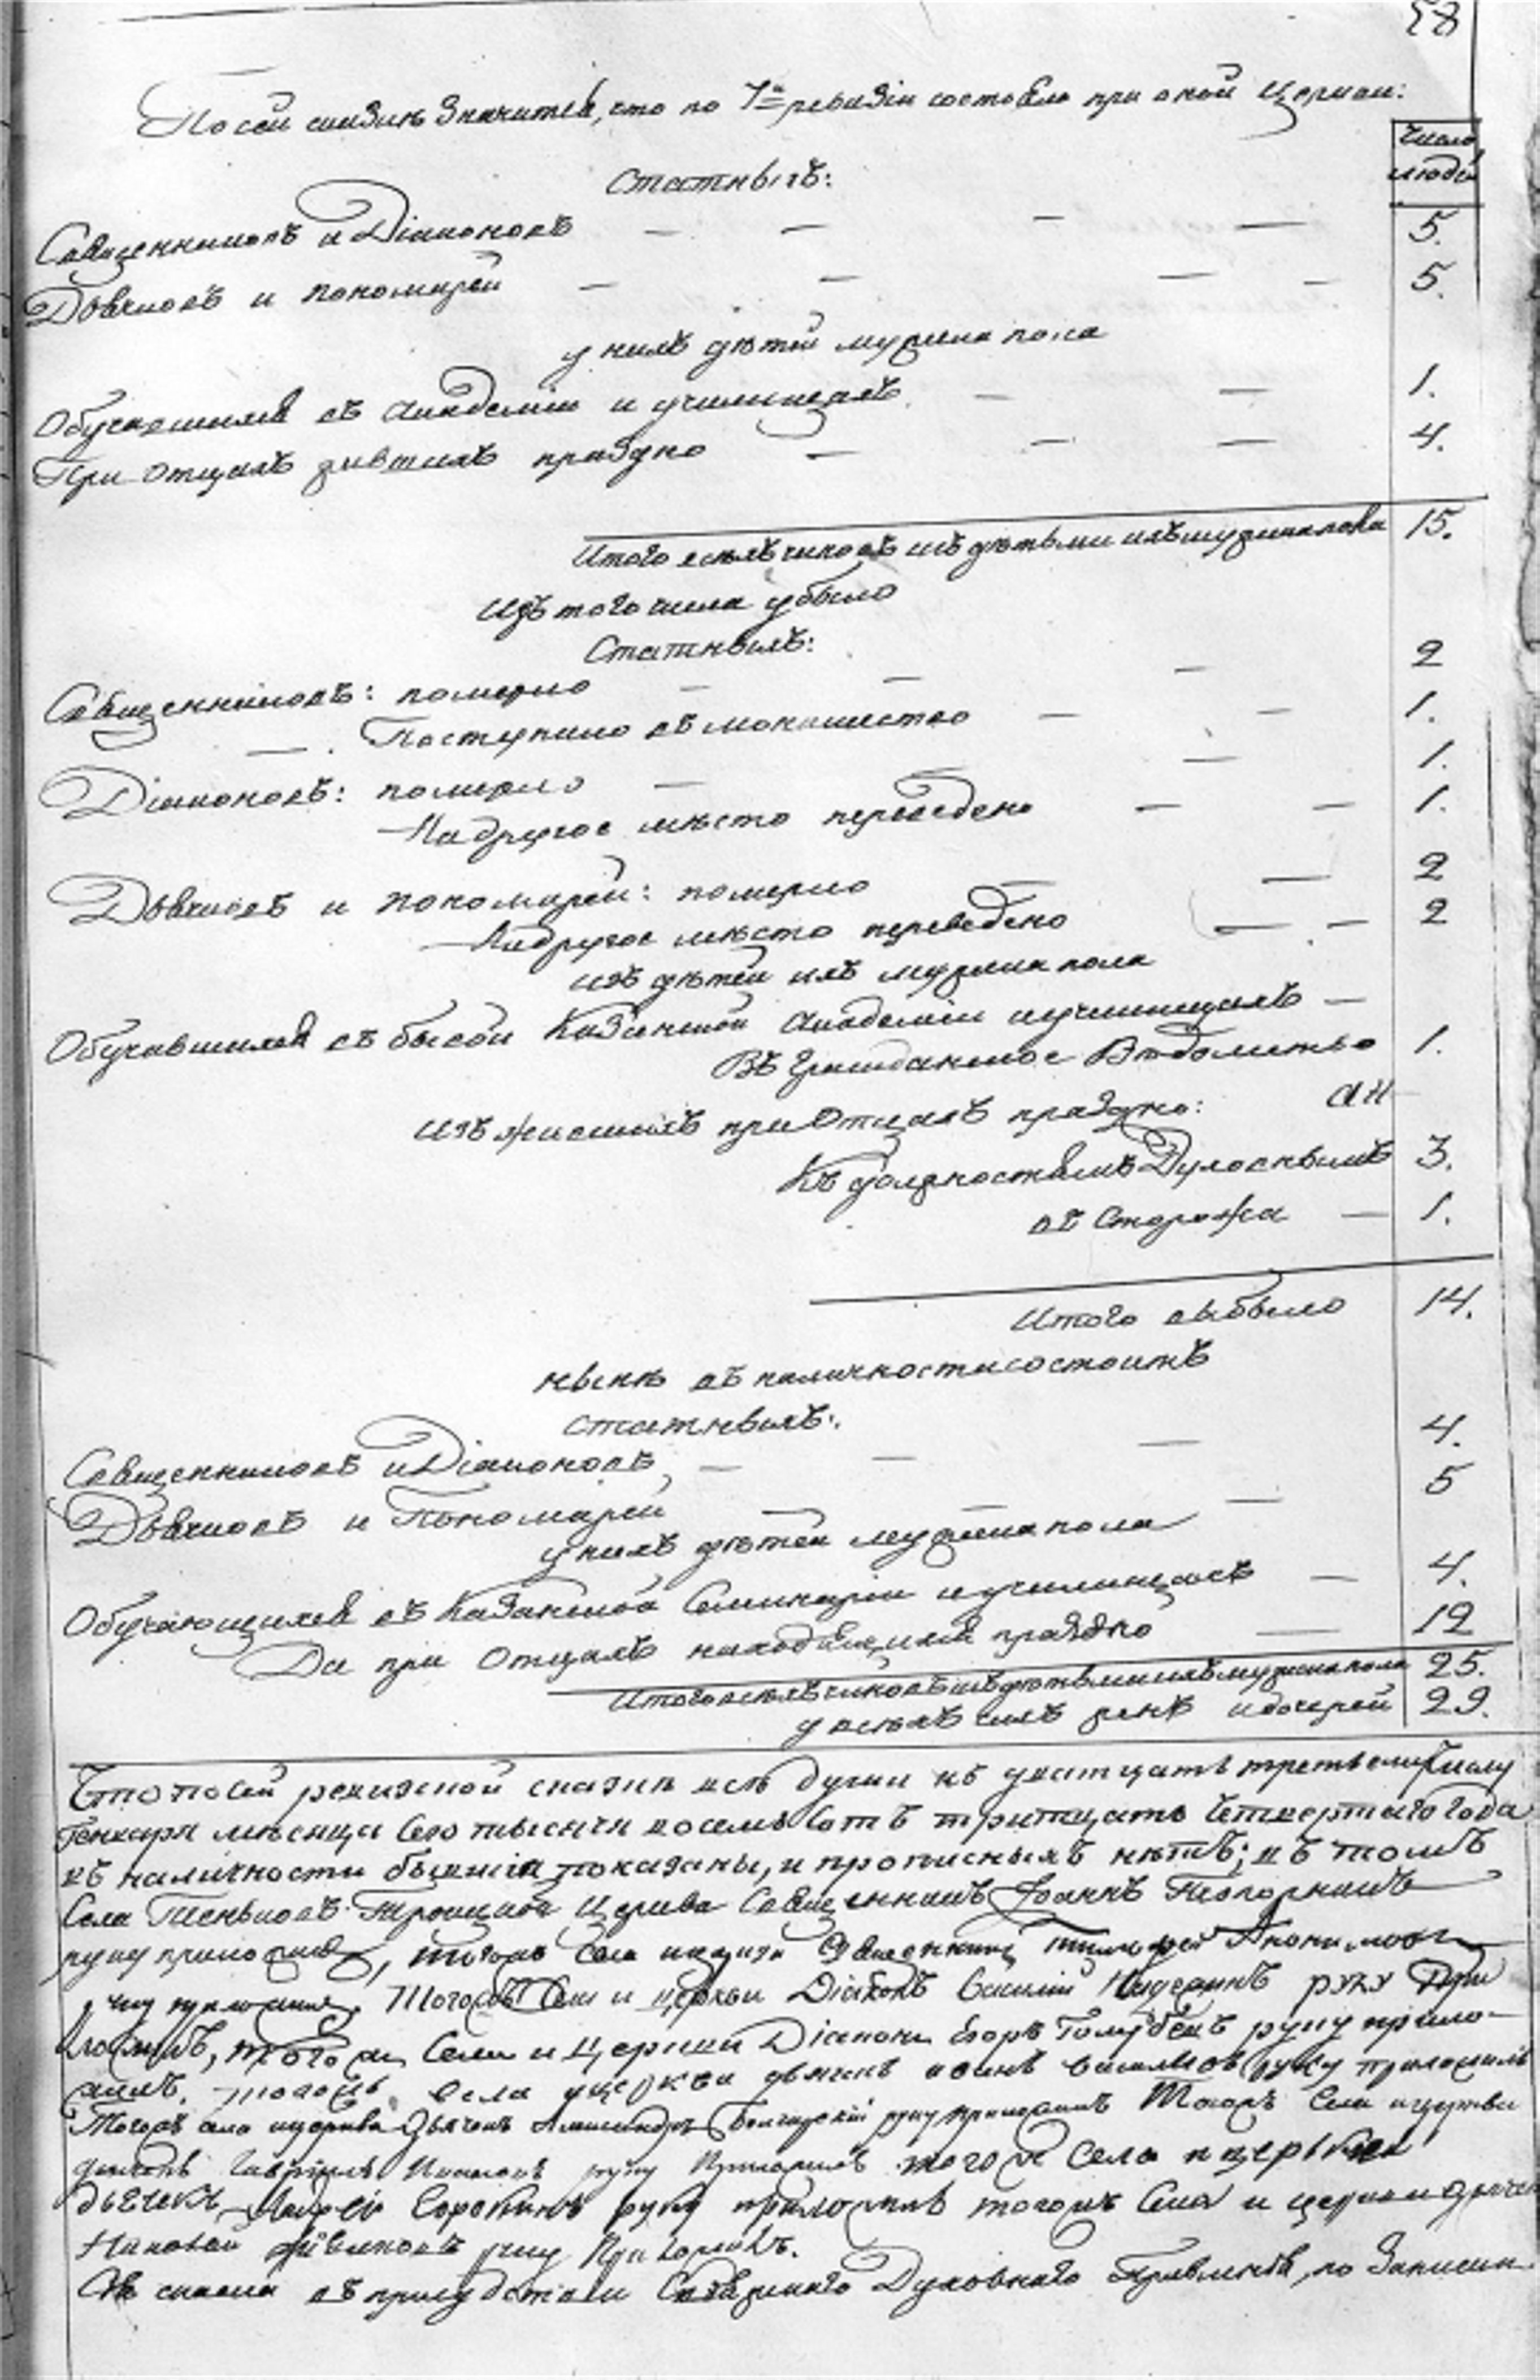 58
По сей сказкѣ значится, что по 7й ревизіи состояло при оной Церкви:
Число людей
Статныхъ:
Священниковъ и Діаконовъ — — — — 5.
Дьячковъ и пономарей — — — — 5.
у нихъ дѣтей мужеска пола
Обучавшихся въ Академіи и училищахъ — — 1.
При Отцахъ жившихъ праздно — — — 4.
Итого всѣхъ чиновъ съ дѣтьми ихъ мужеска пола 15.
Изъ того числа убыло
Статныхъ:
Священниковъ: померло — — — 2
— Поступило въ монашество — — 1.
Діаконовъ: померло — — 1.
На другое мѣсто переведено — — 1.
Дьячковъ и пономарей: померло — — 2
На другое мѣсто переведено — — 2
изъ дѣтей ихъ мужеска пола
Обучавшихся въ бывшей Казанской Академіи и училищахъ —
Въ Гражданское Вѣдомство 1.
изъ жившихъ при Отцахъ праздно:
Къ должностямъ Духовнымъ 3.
въ Сторожа — 1.
Итого выбыло 14.
нынѣ въ наличности состоитъ
статныхъ:
Священниковъ и Діаконовъ — — — 4.
Дьячковъ и Пономарей — — — 5
у нихъ дѣтей мужеска пола
Обучающихся въ Казанской Семинаріи и училищахъ — 4.
Да при Отцахъ находящихся праздно — 12
Итого всѣхъ чиновъ съ дѣтьми ихъ мужеска пола 25.
у всѣхъ ихъ женъ и дочерей 29.
Что по сей ревизской сказкѣ всѣ души къ дватцать третьему числу
Генваря мѣсяца сего тысяча восемь сотъ тритцать четвертаго года
въ наличности бывшія показаны, и прописныхъ нѣтъ; въ томъ
Села Теньковъ Троицкой Церкви Священникъ Іоаннъ
руку приложилъ, тогожъ Села церкви Священникъ Тимофей
руку приложилъ. Тогожъ Села и церкви Діаконъ Василій руку при
ложилъ, тогожъ Села и Церкви Діаконъ Егоръ Голубевъ руку прило-
жилъ. тогожъ Села и церкви дьячекъ Василь́евъ руку приложилъ
Тогожъ села и церкви Дьячекъ Александръ Болгарскій руку приложилъ Тогожъ Села и церкви
дьячекъ Гаврилъ Ивановъ руку Приложилъ того ж Села и церькви
дьячекъ Андрей Сорокинъ руку приложилъ тогожъ Села и церкви дьячекъ
Николай руку Приложилъ.
Сія сказка въ присудствіи Свіяжскаго Духовнаго Правленія, по Записки